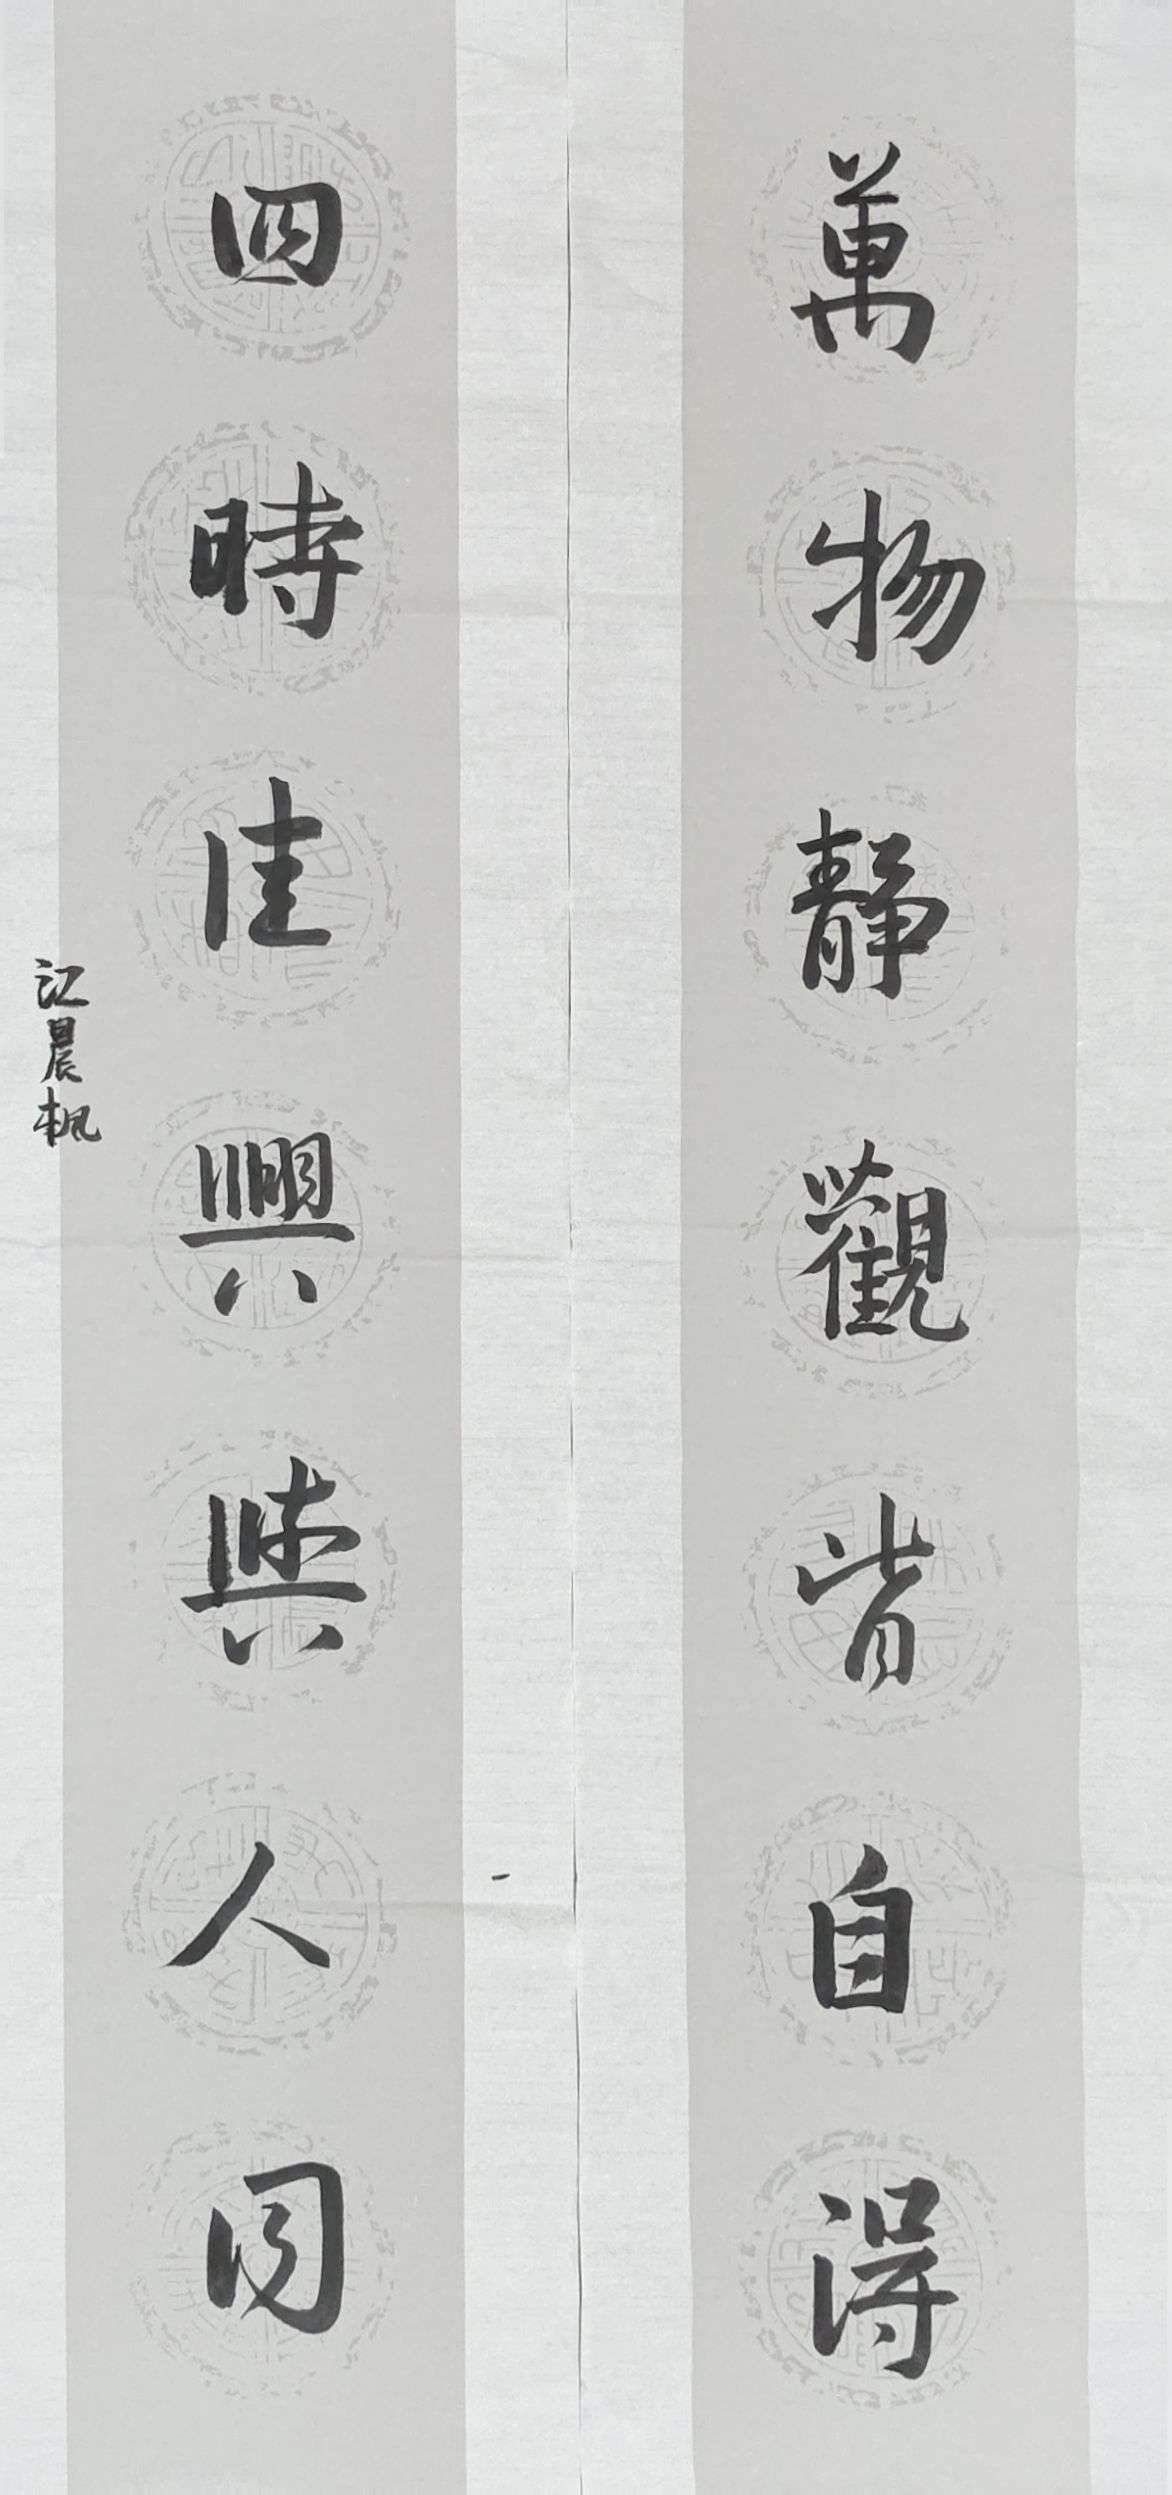 萬物靜觀皆自得
四時佳興與人同
江晨楓